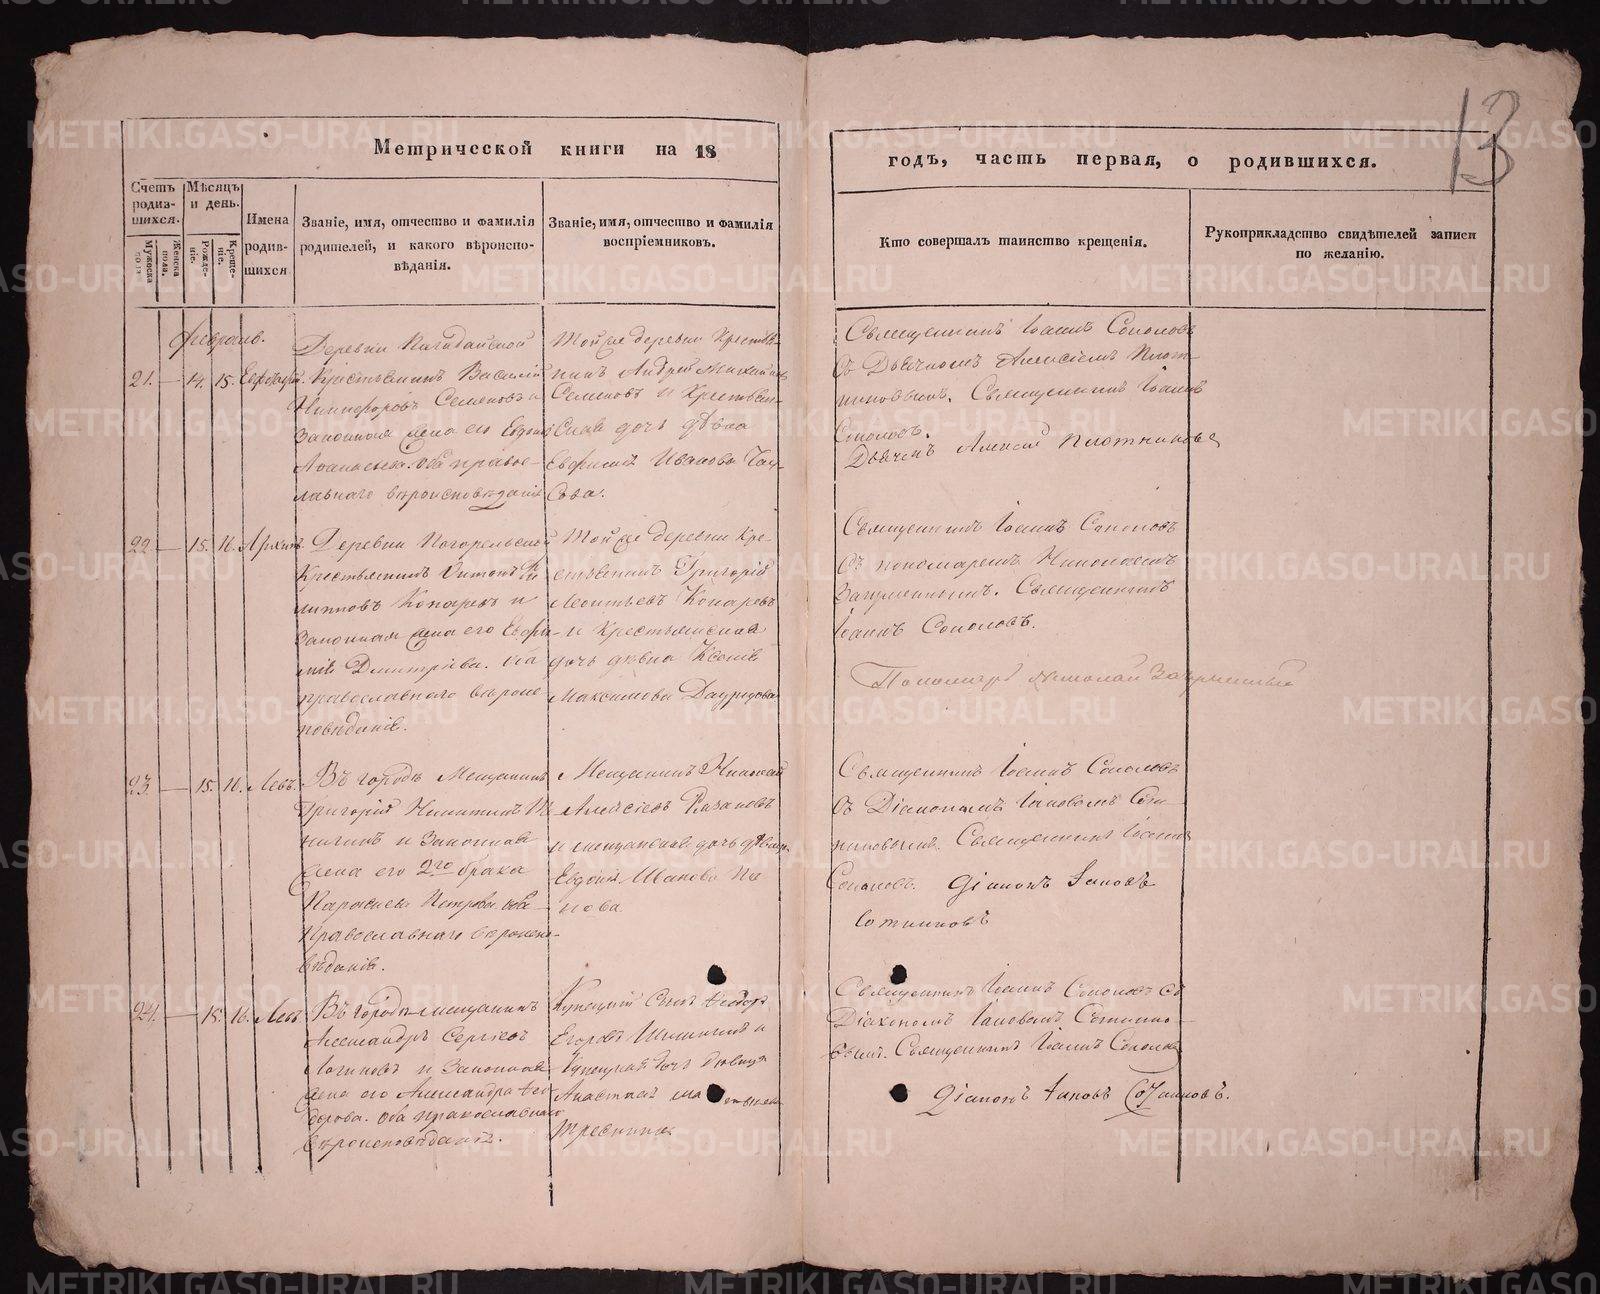 13
Метрической книги на 18
годъ, часть первая, о родившихся.
Счетъ родив-шихся.
Мужеска пола.
Женска пола.
Мѣсяцъ и день.
Рожде-ніе.
Креще-ніе.
Имена родив-шихся
Званіе, имя, отчество и фамилія
родителей, и какого вѣроиспо-
вѣданія.
Званіе, имя, отчество и фамилія
воспріемниковъ.
Кто совершалъ таинство крещенія.
Рукоприкладство свидѣтелей записи
по желанію.
Февраль.
21. — 14. 15.
Деревни
Крестьянинъ Василій
Никифоровъ Семеновъ и
Законная жена его
Оба правос-
лавнаго вѣроисповѣданія
Той же деревни Крестья-
нинъ Андрей
Семеновъ и Крестьян-
ская дочь дѣвка
Иванова
Священникъ Іоаннъ Соколовъ
съ Дьячкомъ Алексіемъ Плот-
никовымъ. Священникъ Іоаннъ
Соколовъ.
Дьячекъ Алексій Плотниковъ
22 — 15. 16. Архипъ
Деревни Погорельской
Крестьянинъ Антонъ Фи
липповъ Кокаревъ и
Законная жена его Евфи-
мія Дмитріева.
православнаго вѣроис
повѣданія.
Той же деревни Кре-
стьянинъ Григорій
Леонтьевъ Кокаревъ
и Крестьянская
дочь дѣвка Ксенія
Максимова
Священникъ Іоаннъ Соколовъ
съ пономаремъ Николаемъ
Загуменнымъ. Священникъ
Іоаннъ Соколовъ.
Пономарь Николай Загуменный
23 — 15. 16. Левъ.
Въ городѣ Мещанинъ
Григорій Никитинъ
и Законная
жена его 2го брака
Параскева Петрова оба
Православнаго вѣроиспо-
вѣданія.
Мещанинъ Николай
Алексіевъ Рязановъ
и мещанская дочь дѣвица
Евдокія Иванова По
пова.
Священникъ Іоаннъ Соколовъ
съ Діакономъ Іаковомъ Сот-
никовымъ. Священникъ Іоаннъ
Соколовъ. Діаконъ Іаковъ
Сотниковъ
24. — 15. 16. Левъ.
Въ городѣ мещанинъ
Александръ Сергіевъ
Логиновъ и Законная
жена его Александра Фео
дорова. Оба православнаго
вѣроисповѣданія.
Купецкій Сынъ Феодоръ
Егоровъ и
Купецкая дочь дѣвица
Анастасія
Священникъ Іоаннъ Соколовъ съ
Діакономъ Іаковомъ Сотнико-
вымъ. Священникъ Іоаннъ Соколовъ
Діаконъ Іаковъ Сотниковъ.
METRIKI.GASO-URAL.RU